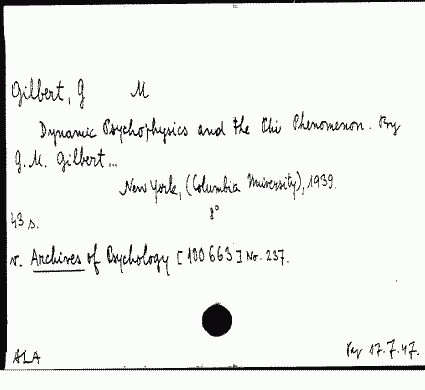 Gilbert, G M
Dynamic Psychophysics and the Phi Phenomenon. By
G. M. Gilbert...
New York, (Columbia University), 1939.
8°
43 s.
v. Archives of Psychology [100663] No. 237.
ALA 17.7.47.